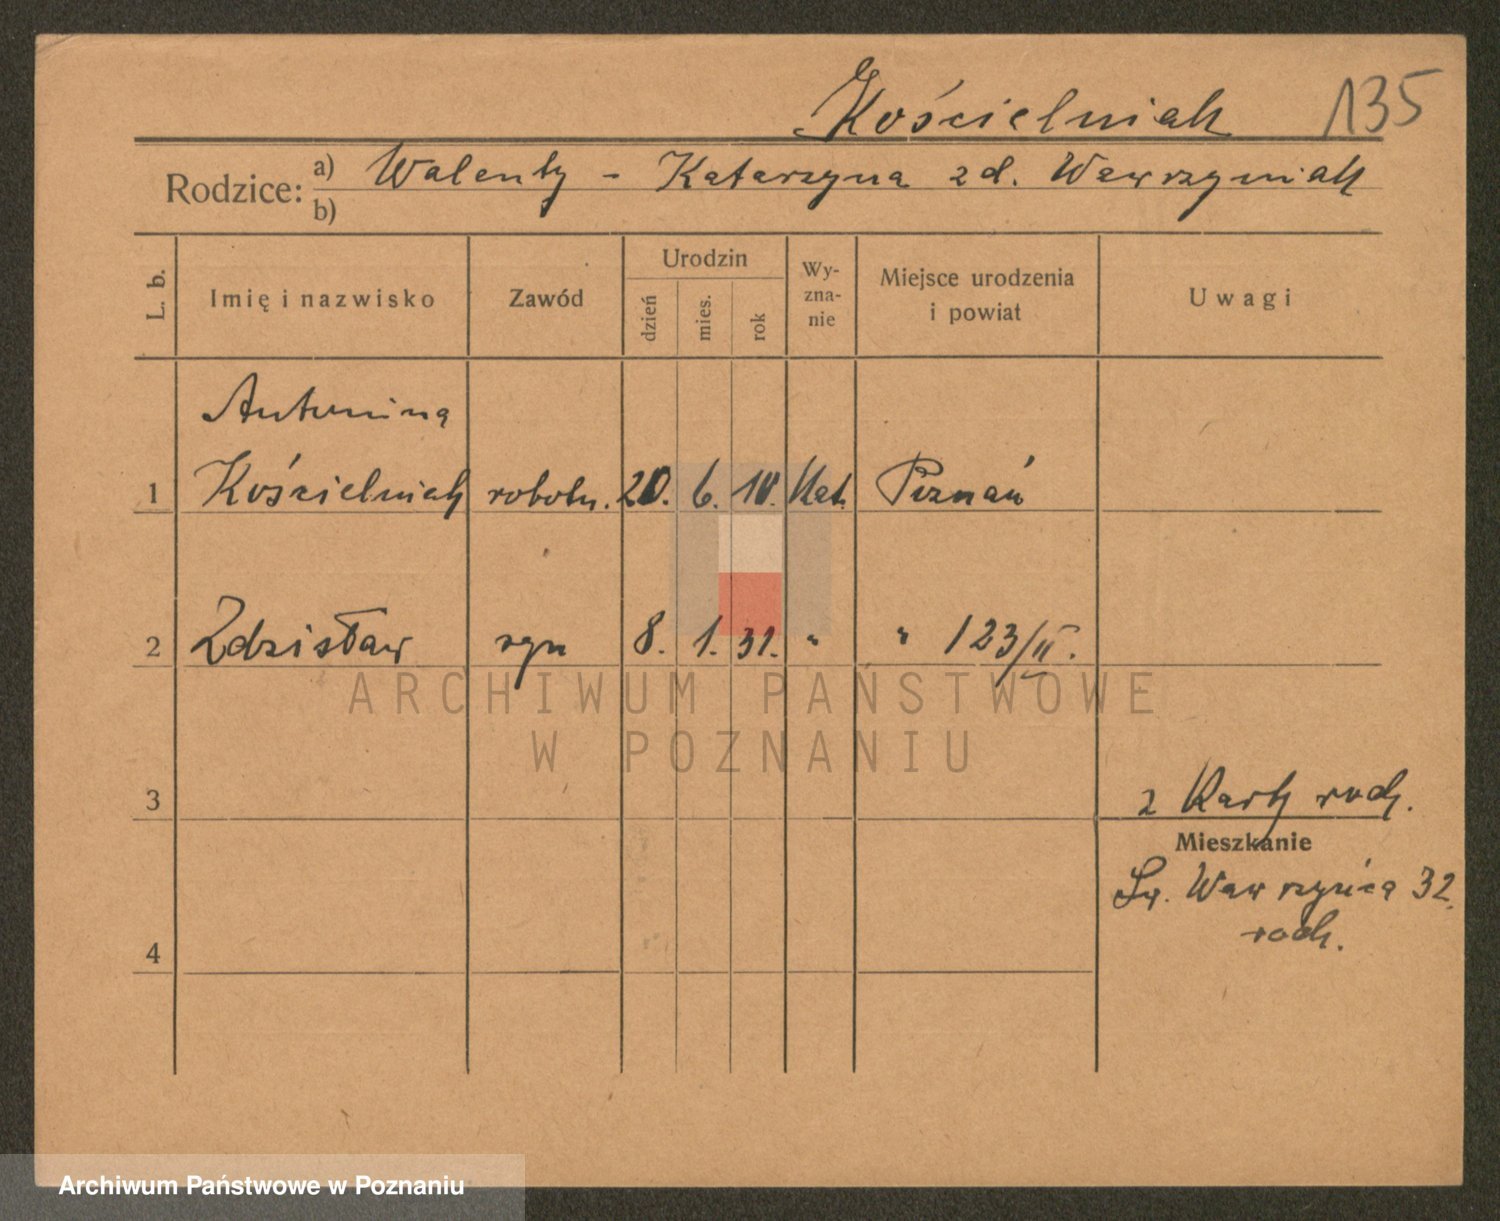 Kościelniak 135
Rodzice: a) Walenty - Katarzyna zd. Wawrzyniak
b)
L. b. Imię i nazwisko Zawód Urodzin dzień mies. rok Wy-zna-nie Miejsce urodzenia i powiat Uwagi
Antonina
1 Kościelniak robotn. 20. 6. 10. Kat. Poznań
2 Zdzisław syn 8. 1. 31. " " 123/II.
ARCHIWUM PAŃSTWOWE
W POZNANIU
3 2 Karty rodz.
Mieszkanie
Św. Wawrzyńca 32.
rodz.
4
Archiwum Państwowe w Poznaniu